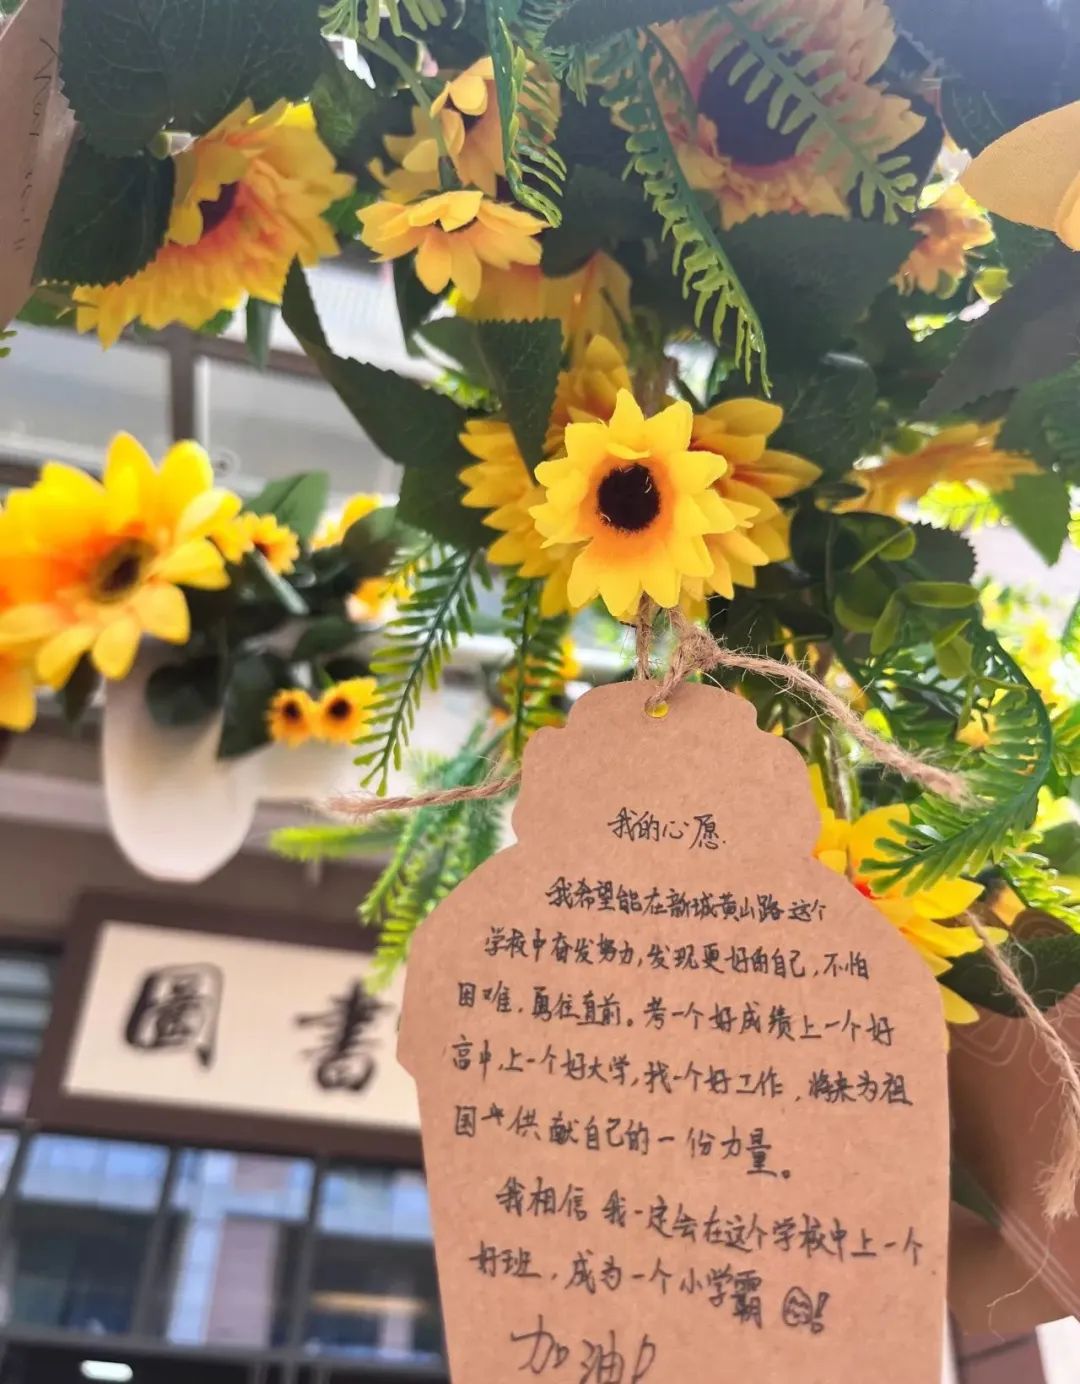 我的心愿
我希望能在新城黄山路这个
学校中奋发努力,发现更好的自己,不怕
困难,勇往直前。考一个好成绩上一个好
高中,上一个好大学,找一个好工作,将来为祖
国供献自己的一份力量。
我相信我一定会在这个学校中上一个
好班,成为一个小学霸!
加油!
圖書